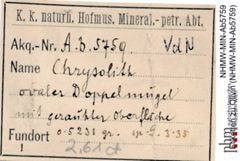 K. k. naturh. Hofmus. Mineral.-petr. Abt.
Akq.-Nr. A.B.5759 VdN
Name Chrysolith
ovaler Doppelmugel
mit gerauhter Oberfläche
Fundort 0.5231 gr.
2,61 ct
NHMW-MIN-Ab5759
(NHMW-MIN-Ab5759)
nhm